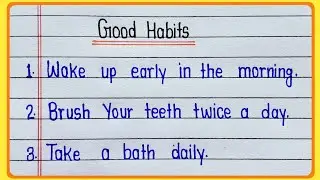 Good Habits
1. Wake up early in the morning.
2. Brush Your teeth twice a day.
3. Take a bath daily.